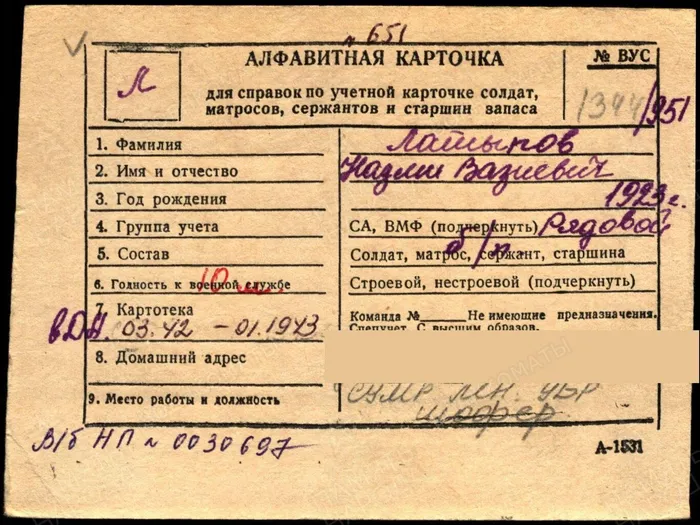 № 651
АЛФАВИТНАЯ КАРТОЧКА
№ ВУС
Л
для справок по учетной карточке солдат,
матросов, сержантов и старшин запаса
1344/951
1. Фамилия Латыпов
2. Имя и отчество Назми Вазиевич
3. Год рождения 1923 г.
4. Группа учета СА, ВМФ (подчеркнуть) Рядовой
5. Состав Солдат, матрос, сержант, старшина
б/п
6. Годность к военной службе Строевой, нестроевой (подчеркнуть)
7. Картотека Команда № Не имеющие предназначения.
вДА. 03.42 - 01.1943 Спецучет. С высшим образов.
8. Домашний адрес
9. Место работы и должность
шофер
В/б НП № 0030697
А-1531